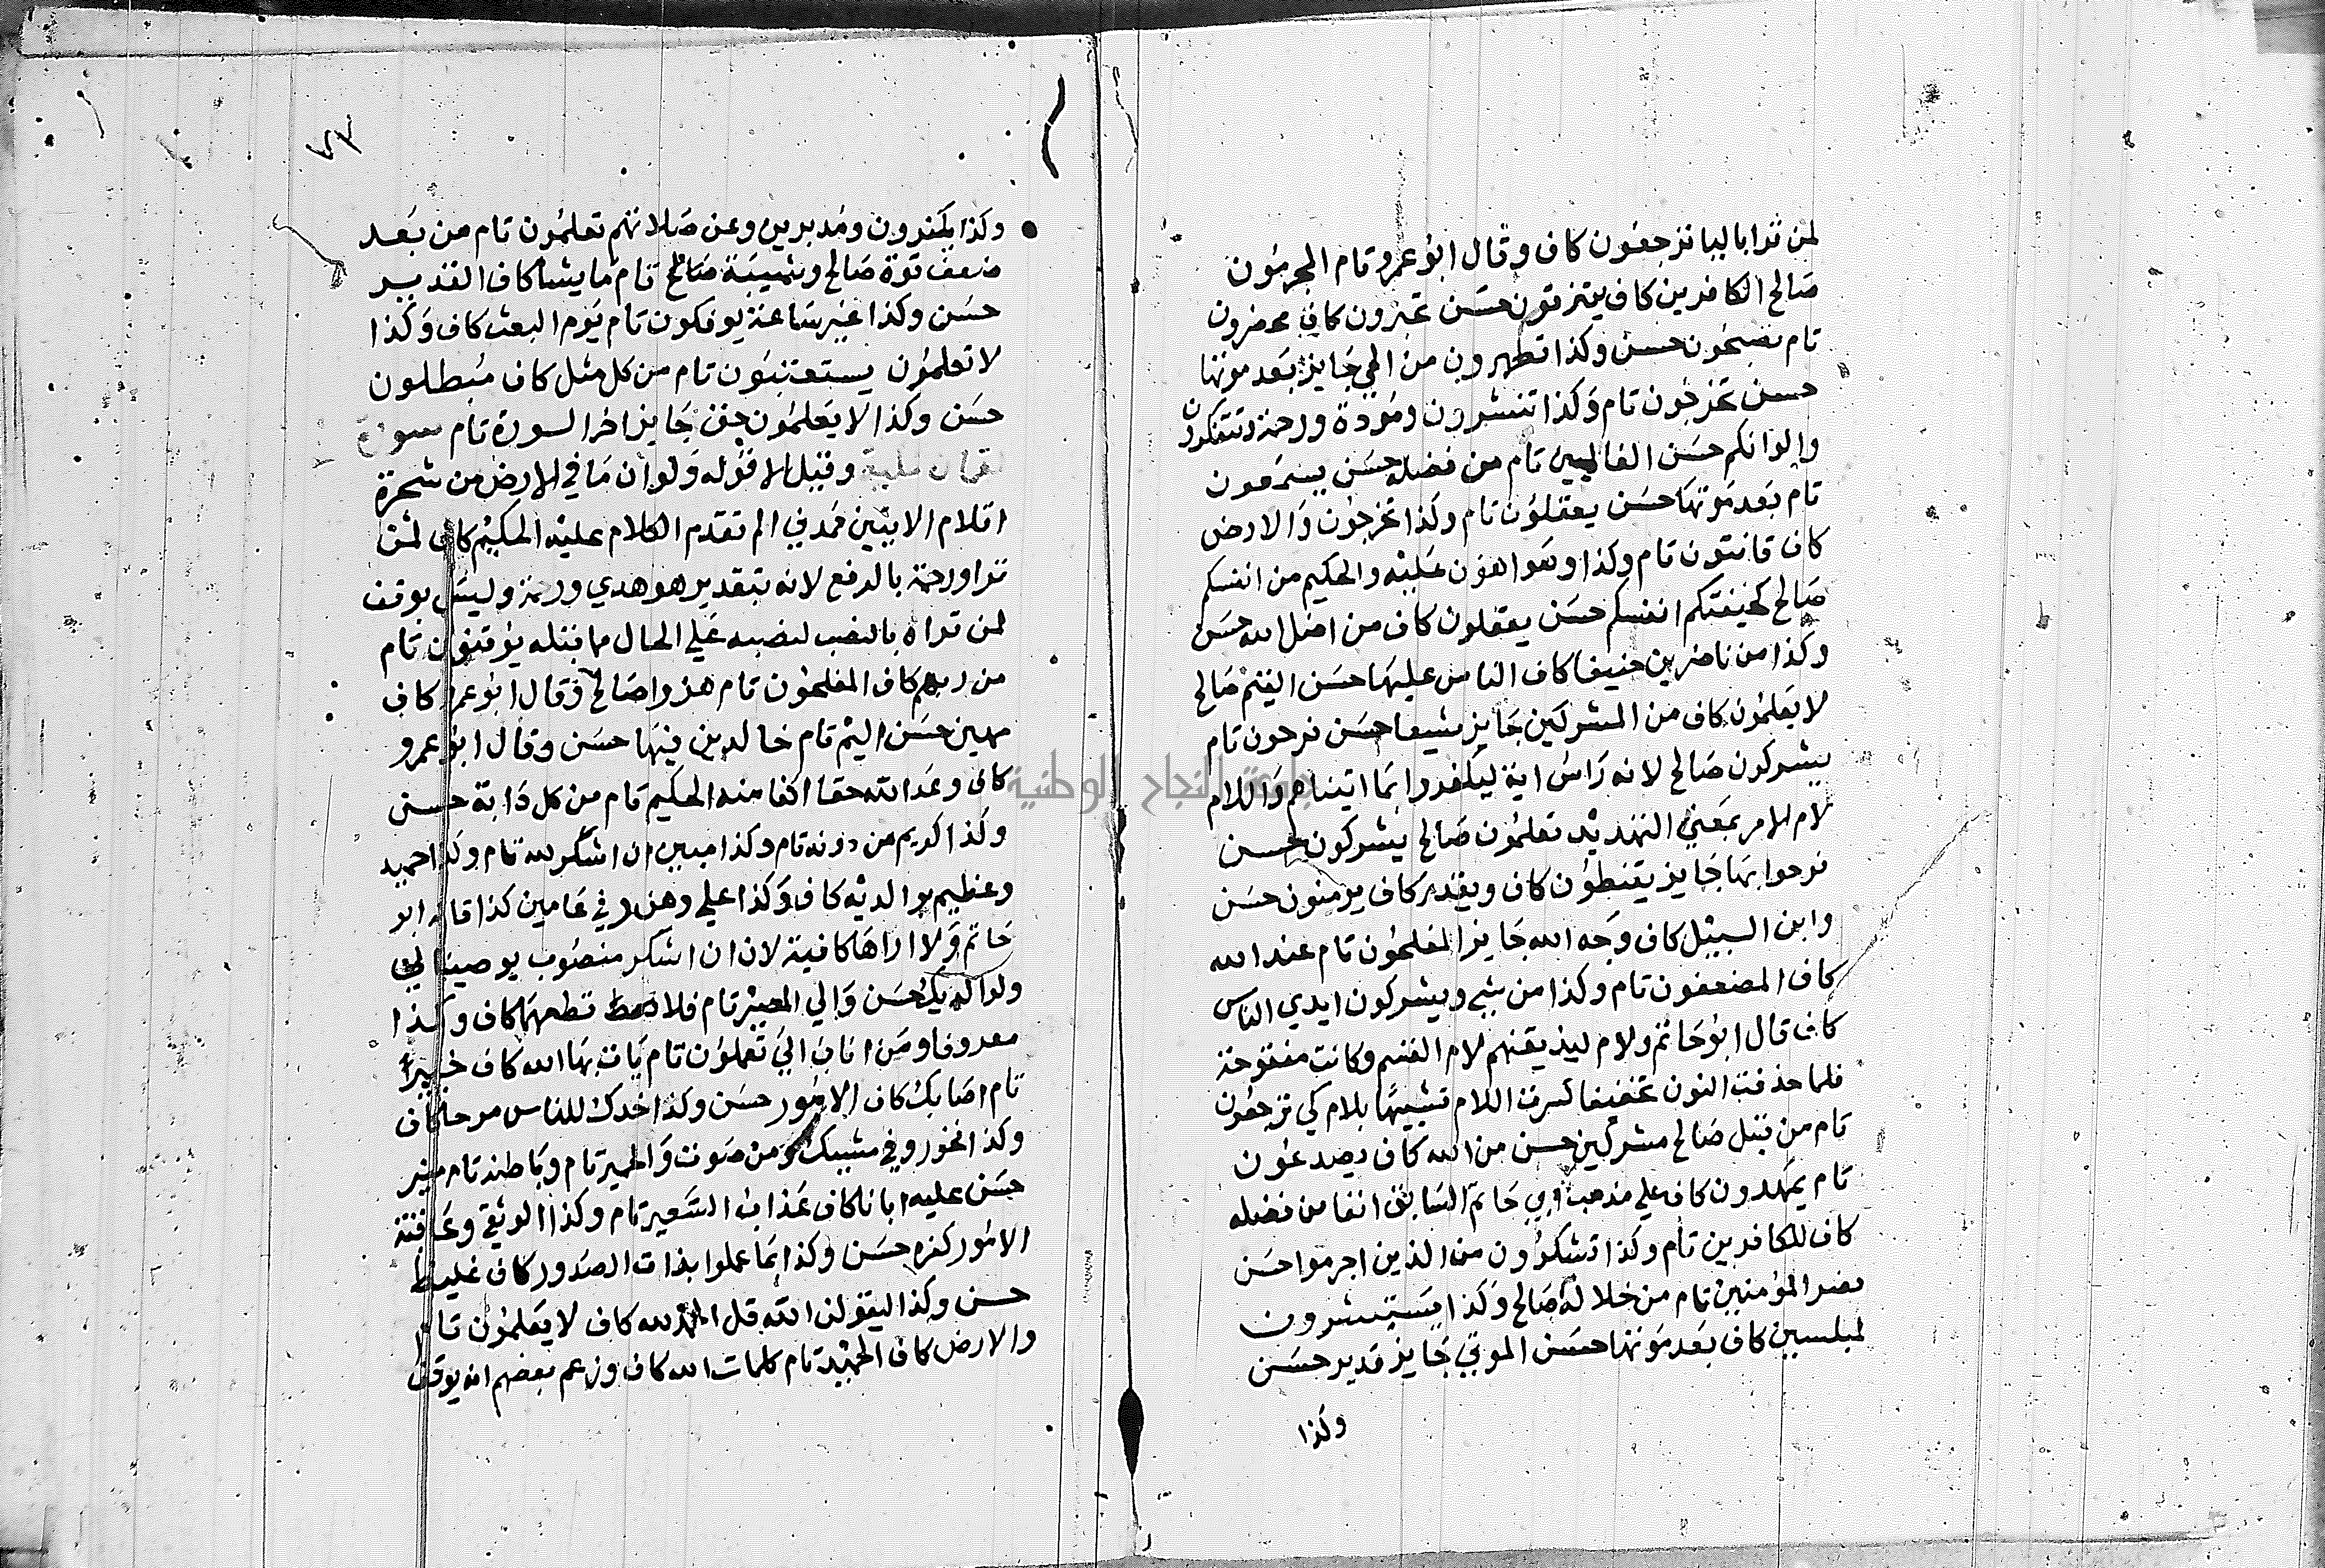 لمن قرا باليا ترجعون كاف وقال ابو عمرو تام المجرمون
صالح الكافرين كاف يتفرقون حسن يحبرون كاف محضرون
تام تصبحون حسن وكذا تظهرون من الحي جايز بعد موتها
حسن تخرجون تام وكذا تنتشرون ومودة ورحمة ويتفكرون
والوانكم حسن العالمين تام من فضله حسن يسمعون
تام بعد موتها حسن يعقلون تام وكذا تخرجون والارض
كاف قانتون تام وكذا وهو اهون عليه والحكيم من انفسكم
صالح كخيفتكم انفسكم حسن يعقلون كاف من اضل الله حسن
وكذا من ناصرين حنيفا كاف الناس عليها حسن القيم صالح
لا يعلمون كاف من المشركين جايز شيعا حسن فرحون تام
يشركون صالح لانه راس اية ليكفروا بما اتيناهم واللام
لام الامر بمعني التهديد تعلمون صالح يشركون حسن
فرحوا بها جايز يقنطون كاف ويقدر كاف يومنون حسن
وابن السبيل كاف وجه الله جايز المفلحون تام عند الله
كاف المضعفون تام وكذا من شي ويشركون ايدي الناس
كاف قال ابو حاتم ولام ليذيقهم لام القسم وكانت مفتوحة
فلما حذفت النون تخفيفا كسرت اللام تشبيها بلام كي ترجعون
تام من قبل صالح مشركين حسن من الله كاف يصدعون
تام يمهدون كاف علي مذهب ابي حاتم السابق انفا من فضله
كاف للكافرين تام وكذا تشكرون من الذين اجرموا حسن
نصر المؤمنين تام من خلاله صالح وكذا يستبشرون
لمبلسين كاف بعد موتها حسن الموتي جايز قدير حسن
وكذا
٧٣
وكذا يكفرون ومدبرين وعن ضلالتهم تعلمون تام من بعد
ضعف قوة صالح وشيبة صالح تام ما يشا كاف القدير
حسن وكذا غير ساعة يوفكون تام يوم البعث كاف وكذا
لا تعلمون يستعتبون تام من كل مثل كاف مبطلون
حسن وكذا لا يعلمون حق جايز اخر السورة تام سورة
لقمان مكية وقيل الا قوله ولو ان ما في الارض من شجرة
اقلام الايتين فمدني الم تقدم الكلام عليه الحكيم كاف لمن
قرا ورحمة بالرفع لانه بتقدير هو هدي ورحمة وليس بوقف
لمن قراه بالنصب لنصبه علي الحال مما قبله يوقنون تام
من ربهم كاف المفلحون تام هزوا صالح وقال ابو عمرو كاف
مهين حسن اليم تام خالدين فيها حسن وقال ابو عمرو
كاف وعد الله حقا اكفا منه الحكيم تام من كل دابة حسن
وكذا كريم من دونه تام وكذا مبين ان اشكر لله تام وكذا حميد
وعظيم بوالديه كاف وكذا علي وهن وفي عامين كذا قاله ابو
حاتم ولا اراها كافية لان ان اشكر منصوب بوصينا لي
ولوالديك حسن والي المصير تام فلا تطعهما كاف وكذا
معروفا ومن اناب الي تعملون تام يات بها الله كاف خبير
تام اصابك كاف الامور حسن وكذا خدك للناس مرحا كاف
وكذا فخور وفي مشيك ومن صوتك والحمير تام وباطنه تام منير
حسن عليه ابانا كاف عذاب السعير تام وكذا الوثقي وعاقبة
الامور كفره حسن وكذا بما عملوا بذات الصدور كاف غليظ
حسن وكذا ليقولن الله قل الحمد لله كاف لا يعلمون تام
والارض كاف الحميد تام كلمات الله كاف وزعم بعضهم انه يوقف
جامعة النجاح الوطنية